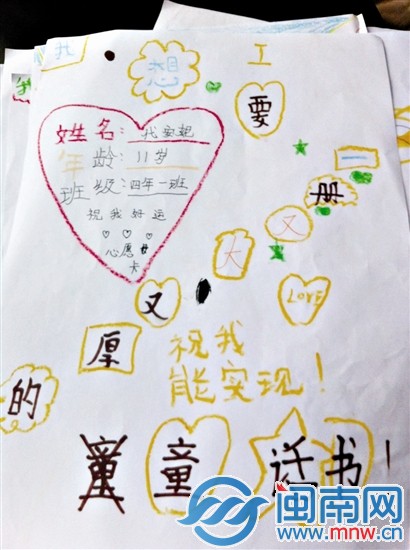 我想
要
一册
又大
又
厚
的
童话书！
LOVE
姓名：
年龄：11岁
班级：四年一班
祝我好运
心愿卡
祝我
能实现！
闽南网
www.mnw.cn